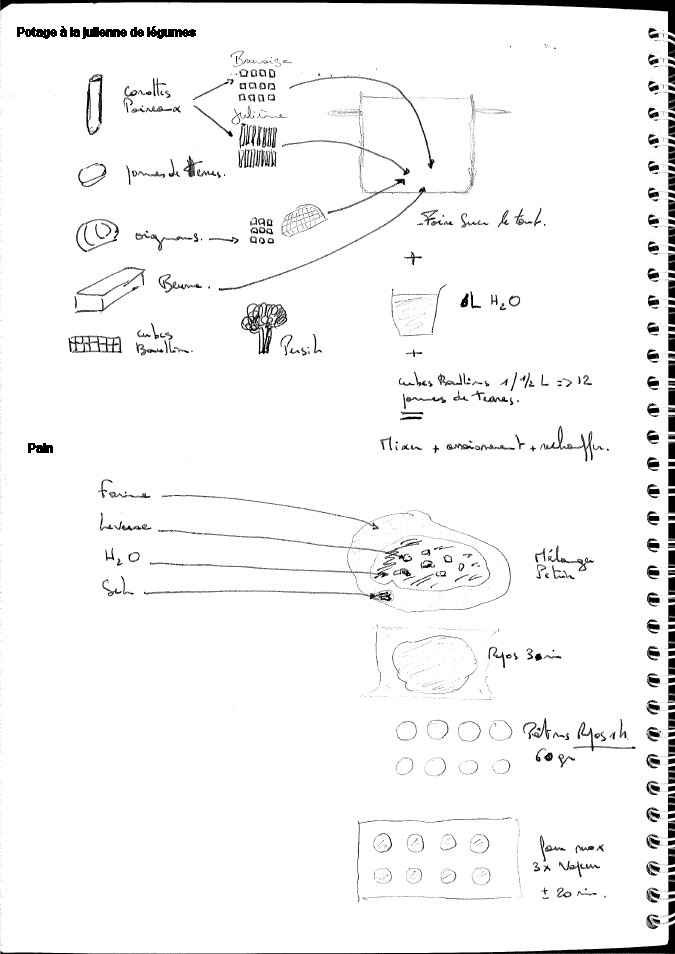 Potage à la julienne de légumes
Brunoise
Carottes
Poireaux
Julienne
pommes de terres.
oignons.
Faire Suer le tout.
+
Beurre.
1L H2O
cubes
Bouillon.
Persil
+
cubes Bouillons 1/1/2 L => 12
pommes de terres.
Mixer + assaisonnement + réchauffer.
Pain
Farine
Levure
H2O
Sel
Mélanger
Pétrir
Repos 30 min
Pâtons Repos 1h
60 gr
four max
3x Vapeur
± 20 min.